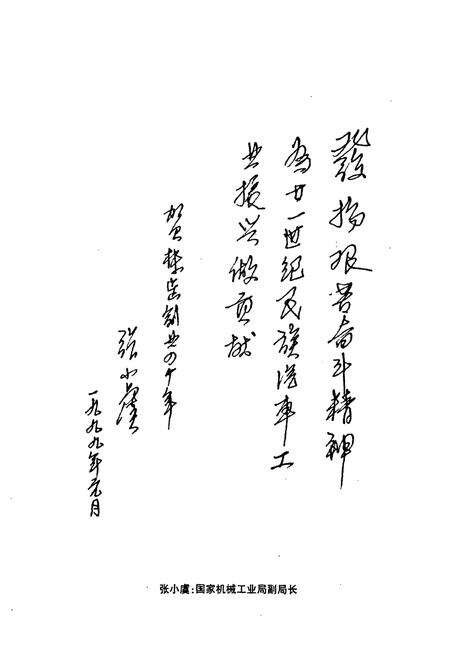 發扬艰苦奋斗精神
为廿一世纪民族汽车工
业振兴做贡献
贺柴齿创业四十年
张小虞
一九九九年元月
张小虞:国家机械工业局副局长